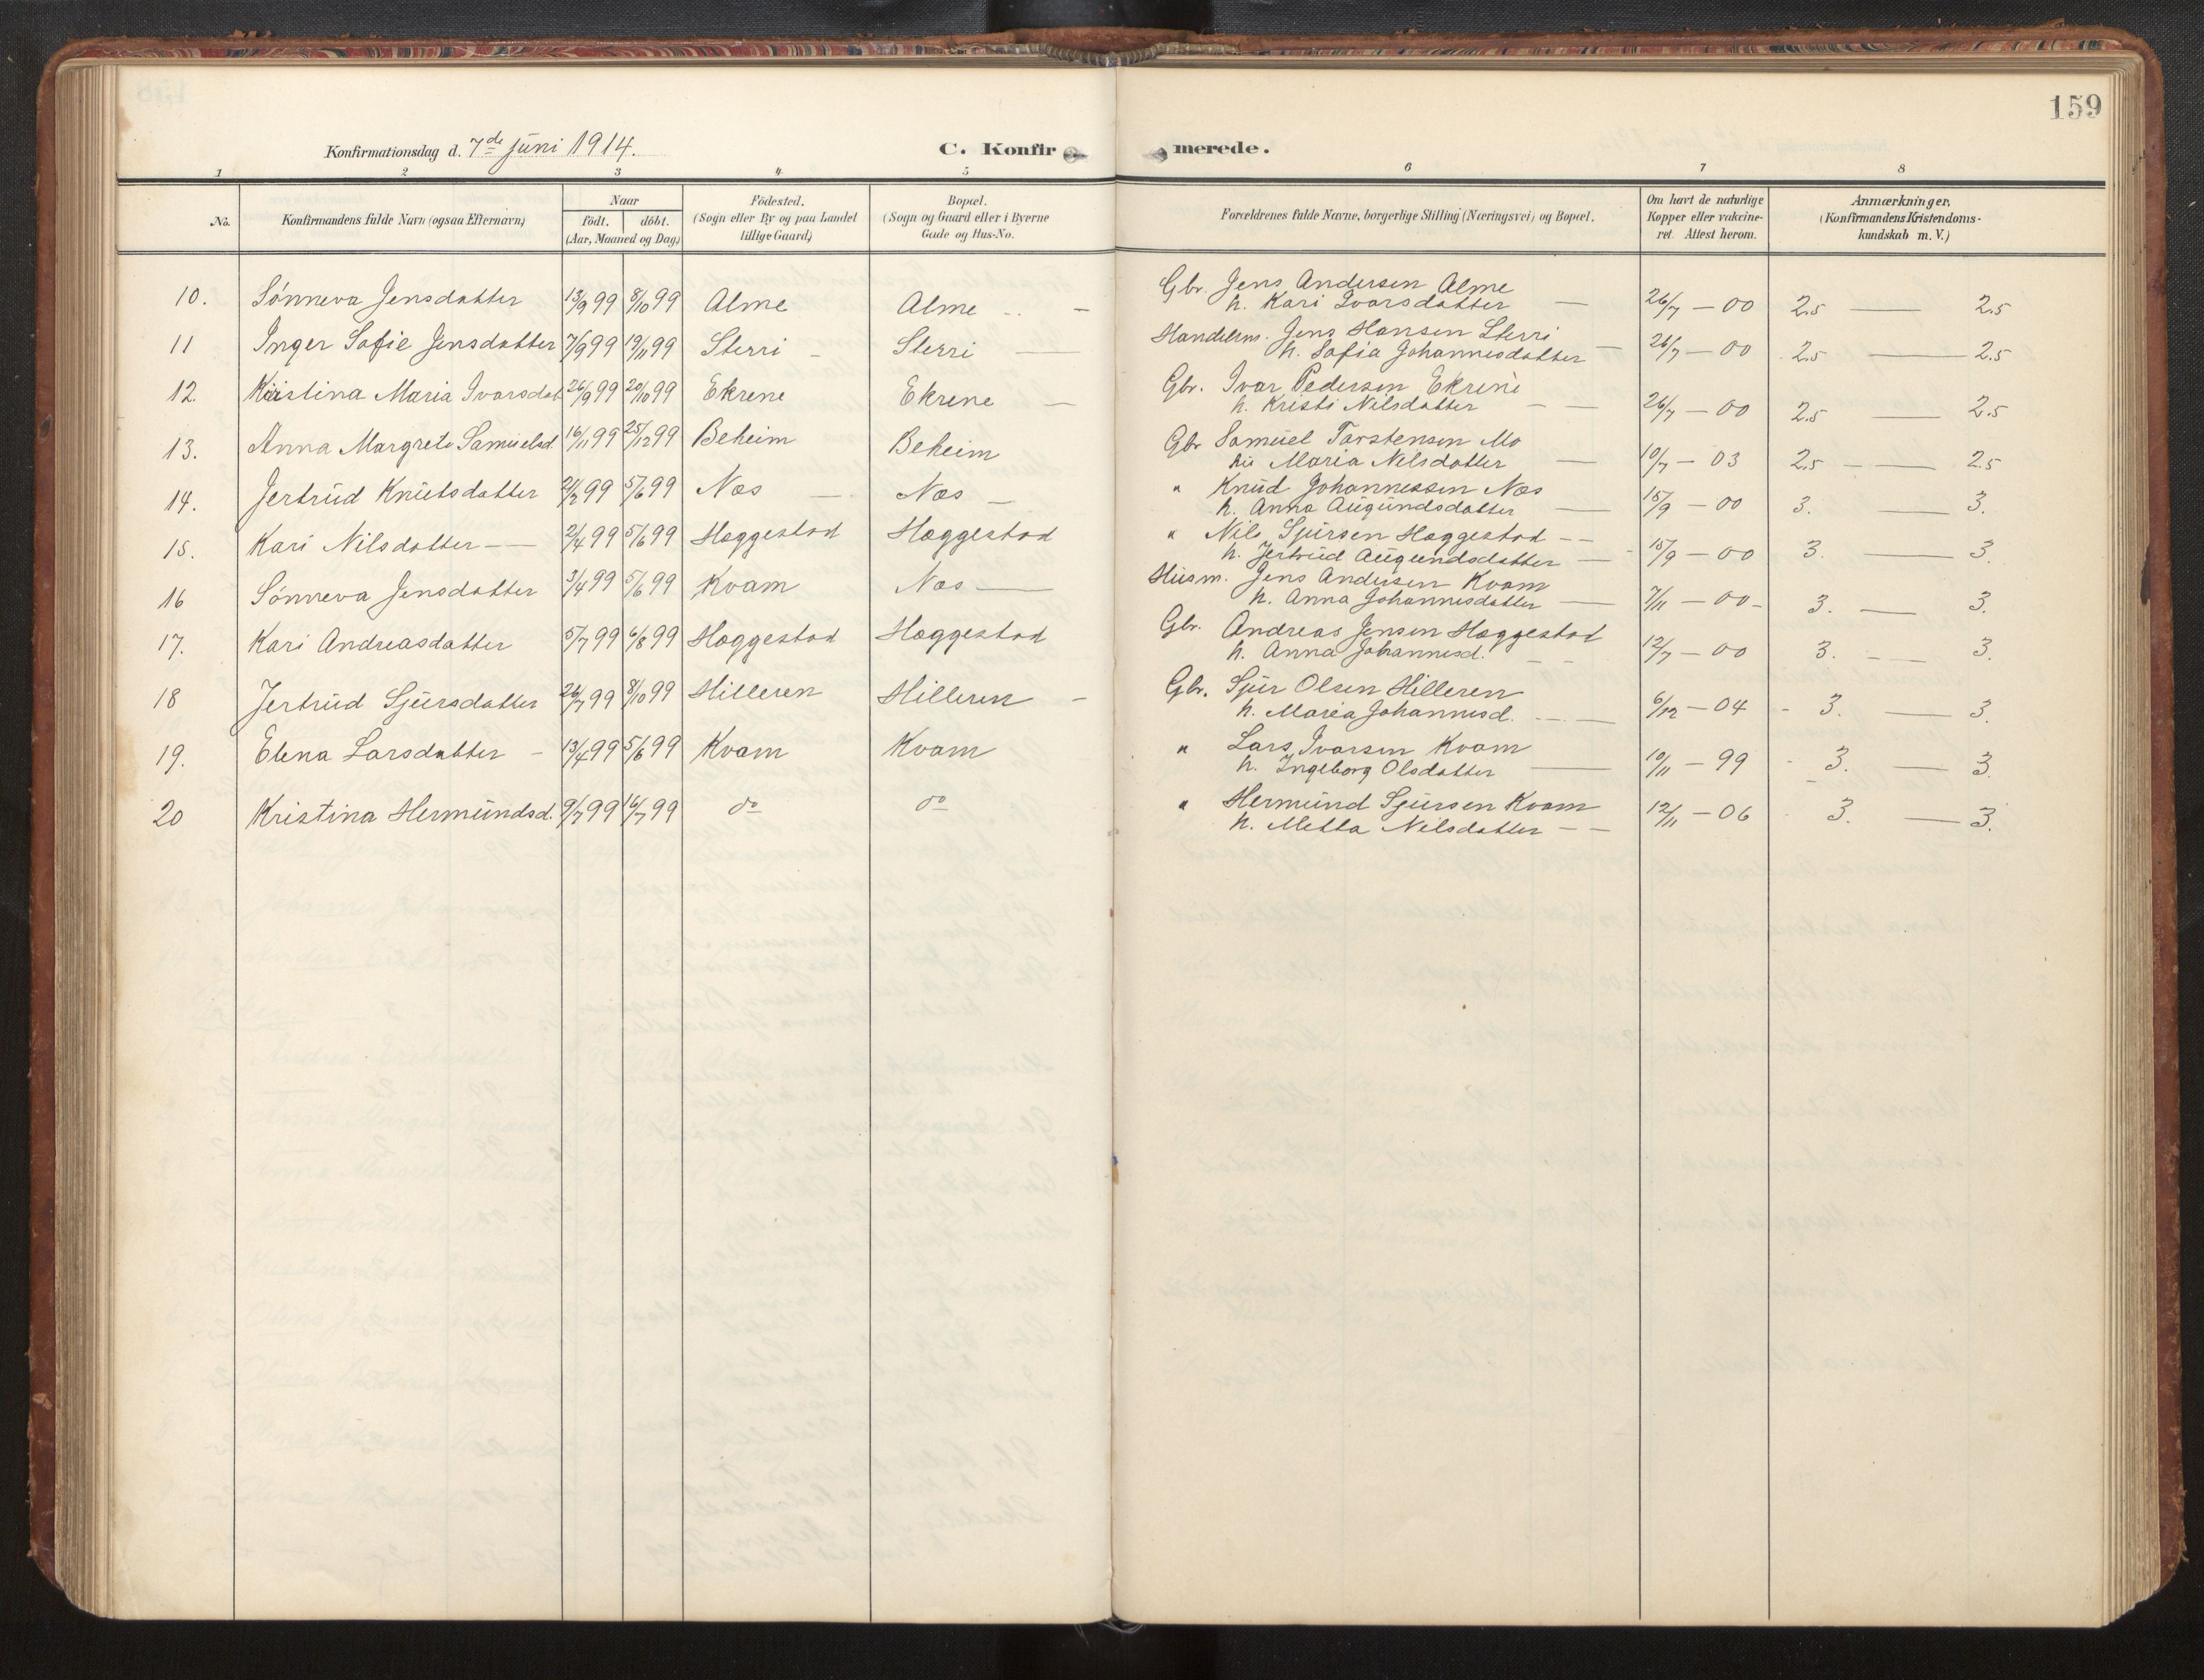 159
Konfirmationsdag d. 7de juni 1914.
C. Konfirmerede.
1 2 3 4 5 6 7 8
No.
Konfirmandens fulde Navn (ogsaa Efternavn)
Naar
födt. döbt.
(Aar, Maaned og Dag)
Födested.
(Sogn eller By og paa Landet
tillige Gaard)
Bopæl.
(Sogn og Gaard eller i Byerne
Gade og Hus-No.
Forældrenes fulde Navne, borgerlige Stilling (Næringsvei) og Bopæl.
Om havt de naturlige
Kopper eller vakcine-
ret. Attest herom.
Anmærkninger,
(Konfirmandens Kristendoms-
kundskab m. V.)
10. Sónneva Jensdatter 13/9 99 8/10 99 Alme Alme Gbr. Jens Andersen Alme
h. Kari Ivarsdatter 26/7 — 00 2.5 — 2.5
11 Inger Sofie Jensdatter 7/9 99 19/11 99 Sterri Sterri Handelsm. Jens Hansen Sterri
h. Sofia Johannesdatter 26/7 — 00 2.5 — 2.5
12. Kristina Maria Ivarsdat 26/9 99 20/10 99 Ekrene Ekrene Gbr. Ivar Pedersen Ekrene
h. Kristi Nilsdatter 26/7 — 00 2.5 — 2.5
13. Anna Margrete Samuelsd. 16/11 99 25/12 99 Beheim Beheim Gbr Samuel Torstensen Mo
hu Maria Nilsdatter 10/7 — 03 2.5 — 2.5
14. Jertrud Knutsdatter 2/2 99 5/6 99 Næs Næs " Knud Johannessen Næs
h. Anna Augundsdatter 15/9 — 00 3. — 3.
15. Kari Nilsdatter 2/4 99 5/6 99 Hæggestad Hæggestad " Nils Sjursen Hæggestad
h. Jertrud Augundsdatter 15/9 — 00 3. — 3.
16 Sónneva Jensdatter 3/4 99 5/6 99 Kvam Næs Husm. Jens Andersen Kvam
h. Anna Johannesdatter 7/11 — 00 3. — 3.
17. Kari Andreasdatter 5/7 99 6/8 99 Hæggestad Hæggestad Gbr. Andreas Jensen Hæggestad
h. Anna Johannesd. 12/7 — 00 3. — 3.
18 Jertrud Sjursdatter 26/7 99 8/10 99 Hilleren Hilleren Gbr. Sjur Olsen Hilleren
h. Maria Johannesd. 6/12 — 04 3. — 3.
19. Elena Larsdatter 13/4 99 5/6 99 Kvam Kvam " Lars Ivarsen Kvam
h. Ingeborg Olsdatter 10/11 — 99 3. — 3.
20 Kristina Hermundsd. 9/7 99 16/7 99 do do " Hermund Sjursen Kvam
h. Metta Nilsdatter 12/11 — 06 3. — 3.